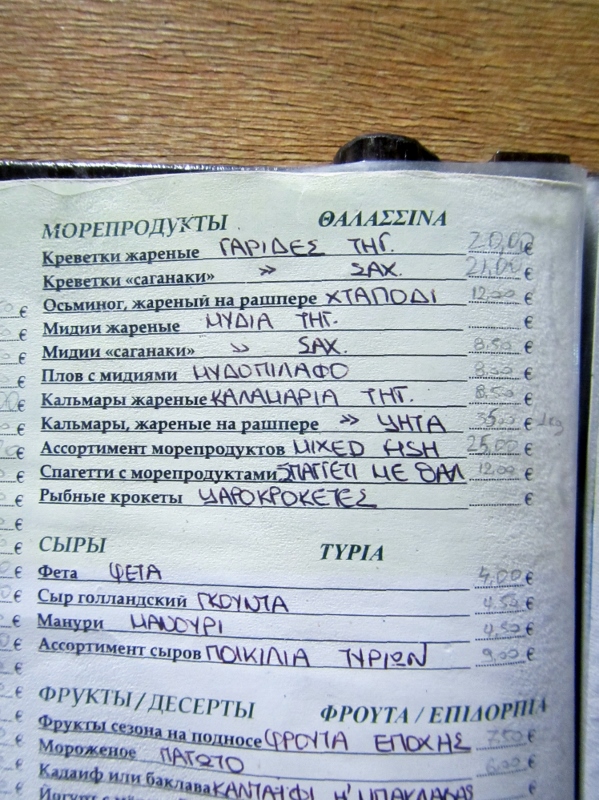 МОРЕПРОДУКТЫ ΘΑΛΑΣΣΙΝΑ
Креветки жареные ΓΑΡΙΔΕΣ ΤΗΓ. 20,00 €
Креветки «саганаки» » ΣΑΧ. 21,00 €
Осьминог, жареный на рашпере ΧΤΑΠΟΔΙ 12,00 €
Мидии жареные ΜΥΔΙΑ ΤΗΓ. €
Мидии «саганаки» » ΣΑΧ. 8,50 €
Плов с мидиями ΜΥΔΟΠΙΛΑΦΟ €
Кальмары жареные ΚΑΛΑΜΑΡΙΑ ΤΗΓ. 8,50 €
Кальмары, жареные на рашпере » ΨΗΤΑ €
Ассортимент морепродуктов MIXED FISH 25,00 €
Спагетти с морепродуктами ΣΠΑΓΓΕΤΙ ΜΕ ΘΑΛ 12,00 €
Рыбные крокеты ΨΑΡΟΚΡΟΚΕΤΕΣ €
СЫРЫ ΤΥΡΙΑ
Фета ΦΕΤΑ 4,00 €
Сыр голландский ΓΚΟΥΝΤΑ 4,50 €
Манури ΜΑΝΟΥΡΙ 4,50 €
Ассортимент сыров ΠΟΙΚΙΛΙΑ ΤΥΡΙΩΝ 9,00 €
ФРУКТЫ / ДЕСЕРТЫ ΦΡΟΥΤΑ / ΕΠΙΔΟΡΠΙΑ
Фрукты сезона на подносе ΦΡΟΥΤΑ ΕΠΟΧΗΣ 7,50 €
Мороженое ΠΑΓΩΤΟ €
Кадаиф или баклава ΚΑΝΤΑΥΦΙ Η' ΜΠΑΚΛΑΒΑΣ